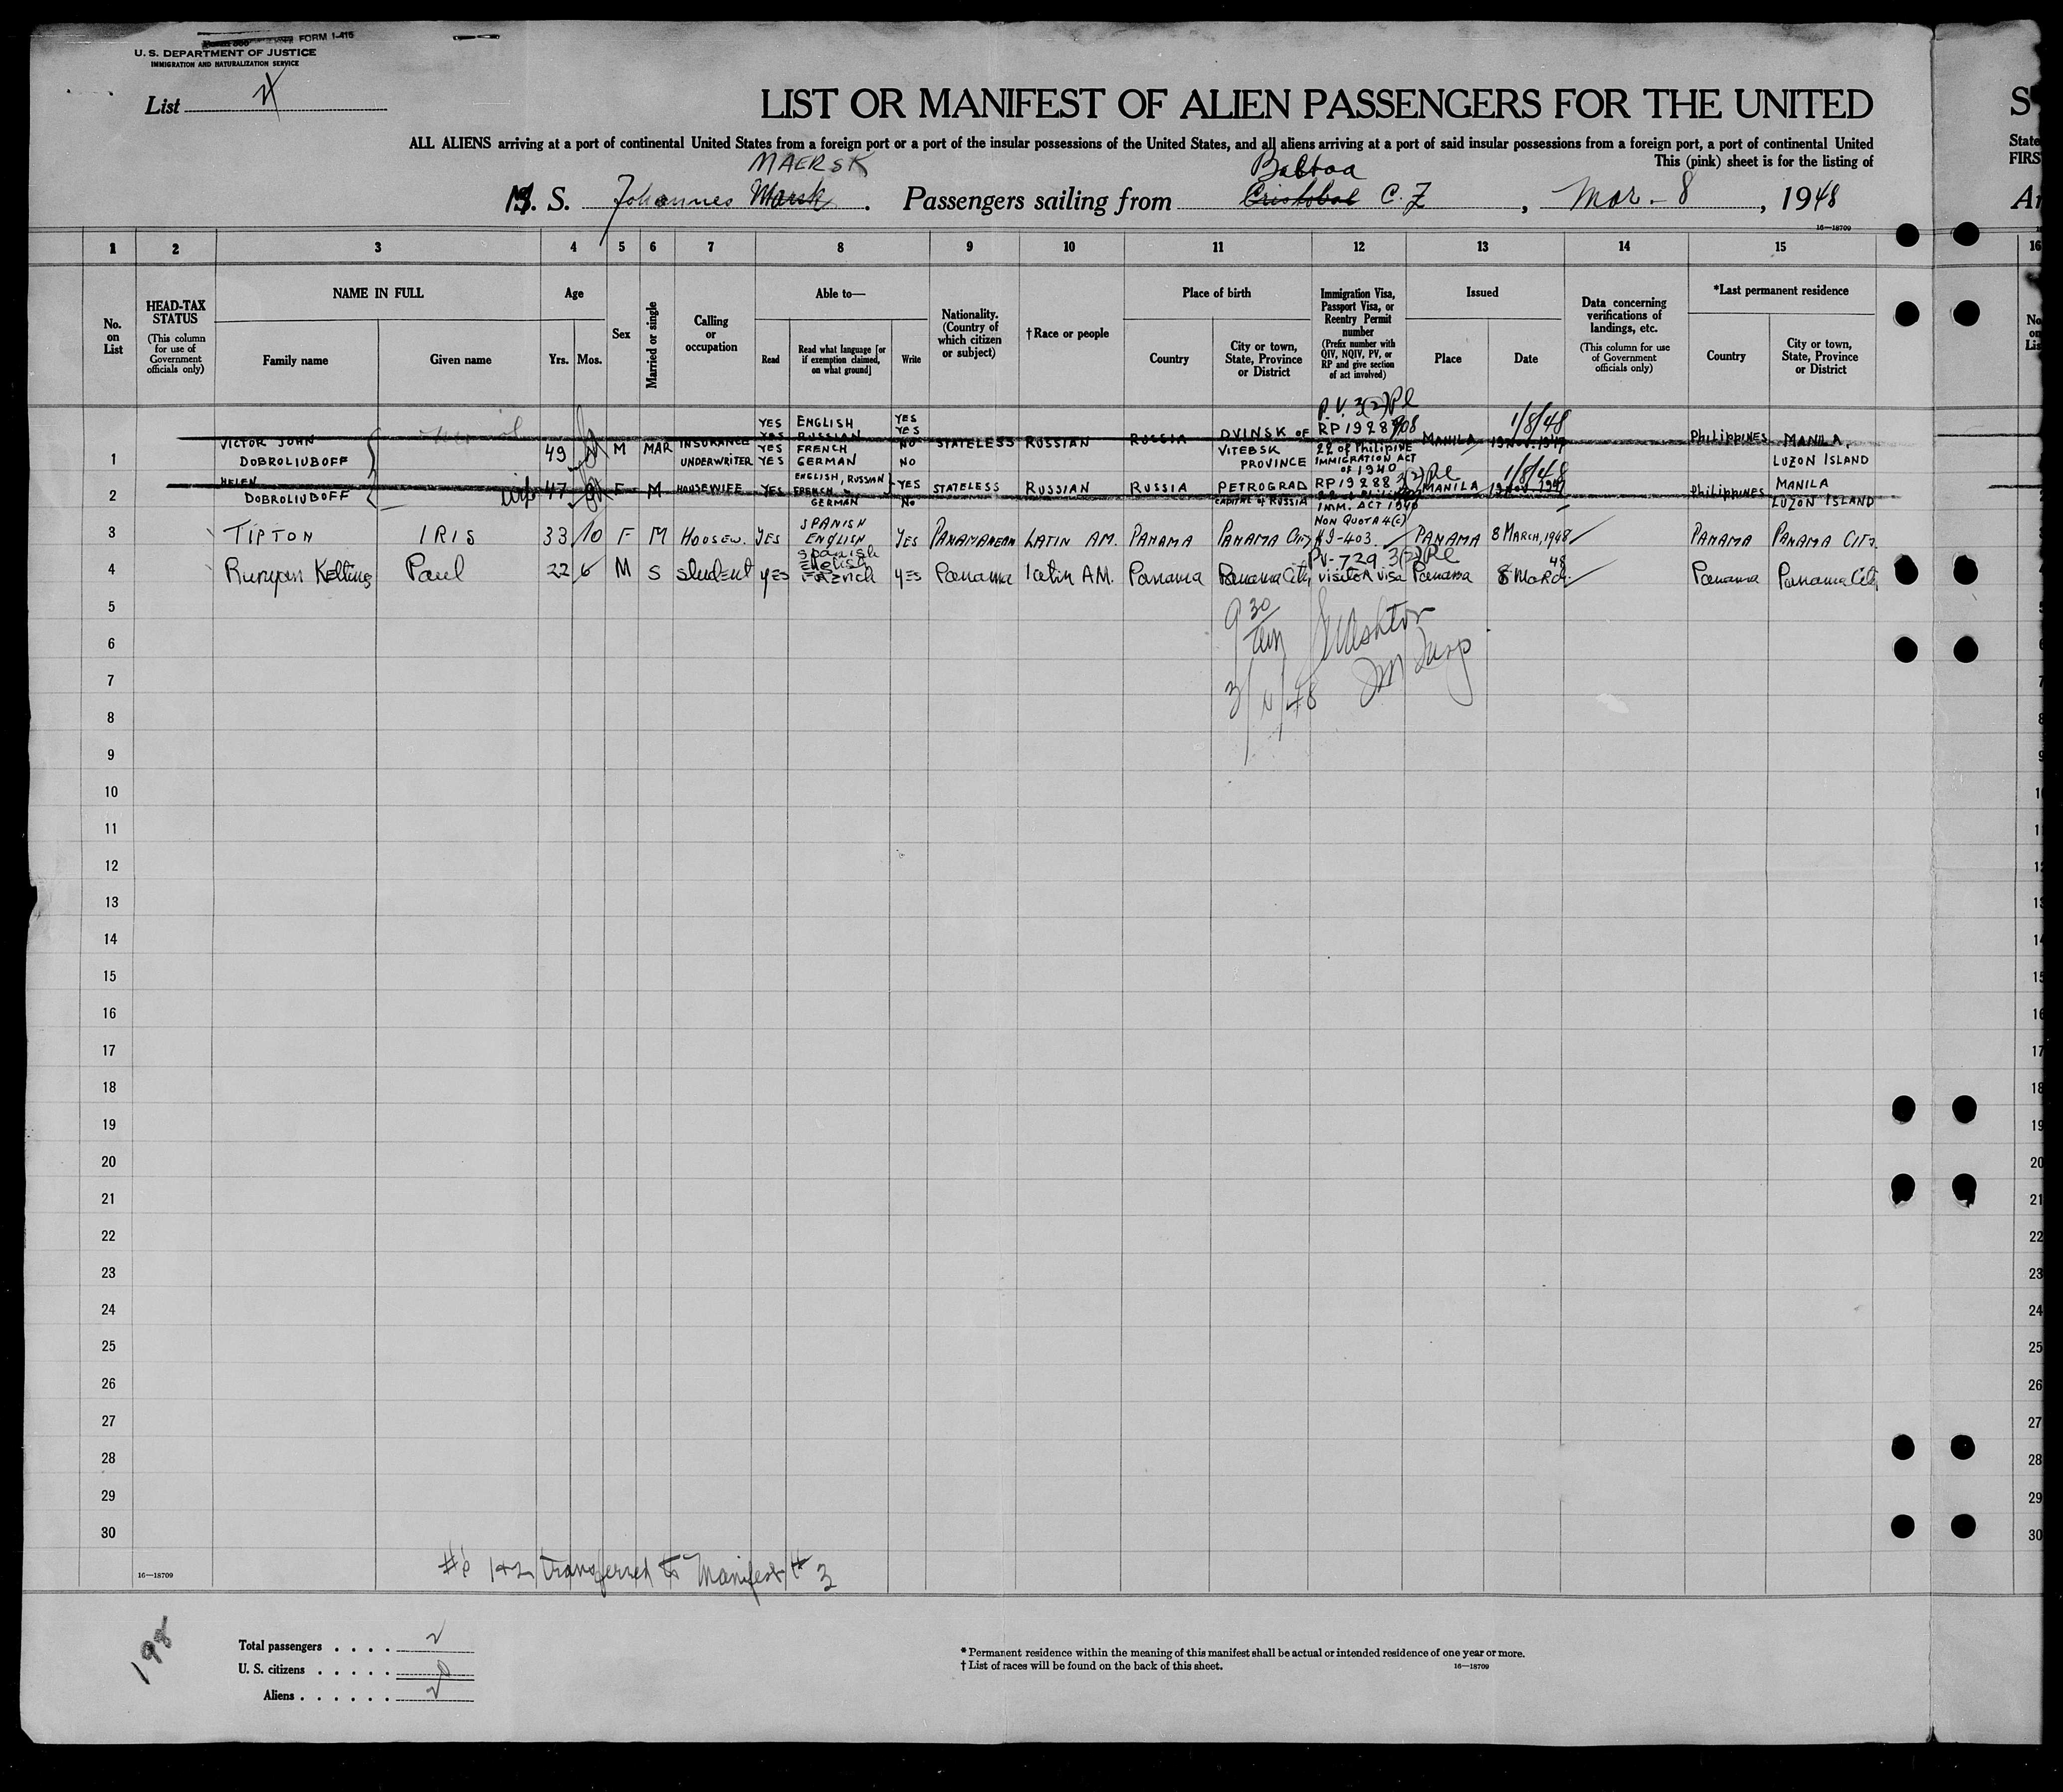 FORM I-416
U. S. DEPARTMENT OF JUSTICE
IMMIGRATION AND NATURALIZATION SERVICE
List
LIST OR MANIFEST OF ALIEN PASSENGERS FOR THE UNITED
S
ALL ALIENS arriving at a port of continental United States from a foreign port or a port of the insular possessions of the United States, and all aliens arriving at a port of said insular possessions from a foreign port, a port of continental United
State
This (pink) sheet is for the listing of
FIRS
MAERSK
Balboa
M. S. Johannes Marsk. Passengers sailing from Cristobal C. Z, Mar - 8, 1948
16—18709
1 2 3 4 5 6 7 8 9 10 11 12 13 14 15 16
No. on List
HEAD-TAX STATUS
(This column for use of Government officials only)
NAME IN FULL
Family name
Given name
Age
Yrs. Mos.
Sex
Married or single
Calling or occupation
Able to—
Read
Read what language [or if exemption claimed, on what ground]
Write
Nationality. (Country of which citizen or subject)
†Race or people
Place of birth
Country
City or town, State, Province or District
Immigration Visa, Passport Visa, or Reentry Permit number
(Prefix number with QIV, NQIV, PV, or RP and give section of act involved)
Issued
Place
Date
Data concerning verifications of landings, etc.
(This column for use of Government officials only)
*Last permanent residence
Country
City or town, State, Province or District
1 VICTOR JOHN DOBROLIUBOFF 49 M MAR INSURANCE UNDERWRITER
YES ENGLISH YES
YES RUSSIAN YES
YES FRENCH NO
YES GERMAN NO
STATELESS RUSSIAN RUSSIA DVINSK OF VITEBSK PROVINCE
P.V. 3(2) Pl
RP 19287
22 of Philipine IMMIGRATION ACT OF 1940
MANILA 1/8/48 19 NOV. 1947
Philippines MANILA, LUZON ISLAND
2 HELEN DOBROLIUBOFF wife 47 F M HOUSEWIFE YES ENGLISH, RUSSIAN YES
FRENCH GERMAN NO
STATELESS RUSSIAN RUSSIA PETROGRAD CAPITAL of RUSSIA
RP 19288 3(2) Pl
IMM. ACT 1940
MANILA 1/8/48 19 NOV. 1947
Philippines MANILA LUZON ISLAND
3 TIPTON IRIS 33 10 F M HOUSEW. YES SPANISH ENGLISH YES PANAMANEAN LATIN AM. PANAMA PANAMA CITY NON QUOTA 4(c) #9-403. PANAMA 8 MARCH, 1948 PANAMA PANAMA CITY.
4 Runyan Kelting Paul 22 6 M S student yes spanish English French yes Panama latin AM. Panama Panama City PV-729 3(2) Pl visitor visa Panama 8 March 48 Panama Panama City
5
9 30
am
6
7
3/11/48
8
9
10
11
12
13
14
15
16
17
18
19
20
21
22
23
24
25
26
27
28
29
30
#s 1+2 transferred to Manifest # 3
16—18709
198
Total passengers . . . . 2
U. S. citizens . . . . . 0
Aliens . . . . . . 2
* Permanent residence within the meaning of this manifest shall be actual or intended residence of one year or more.
† List of races will be found on the back of this sheet.
16—18709